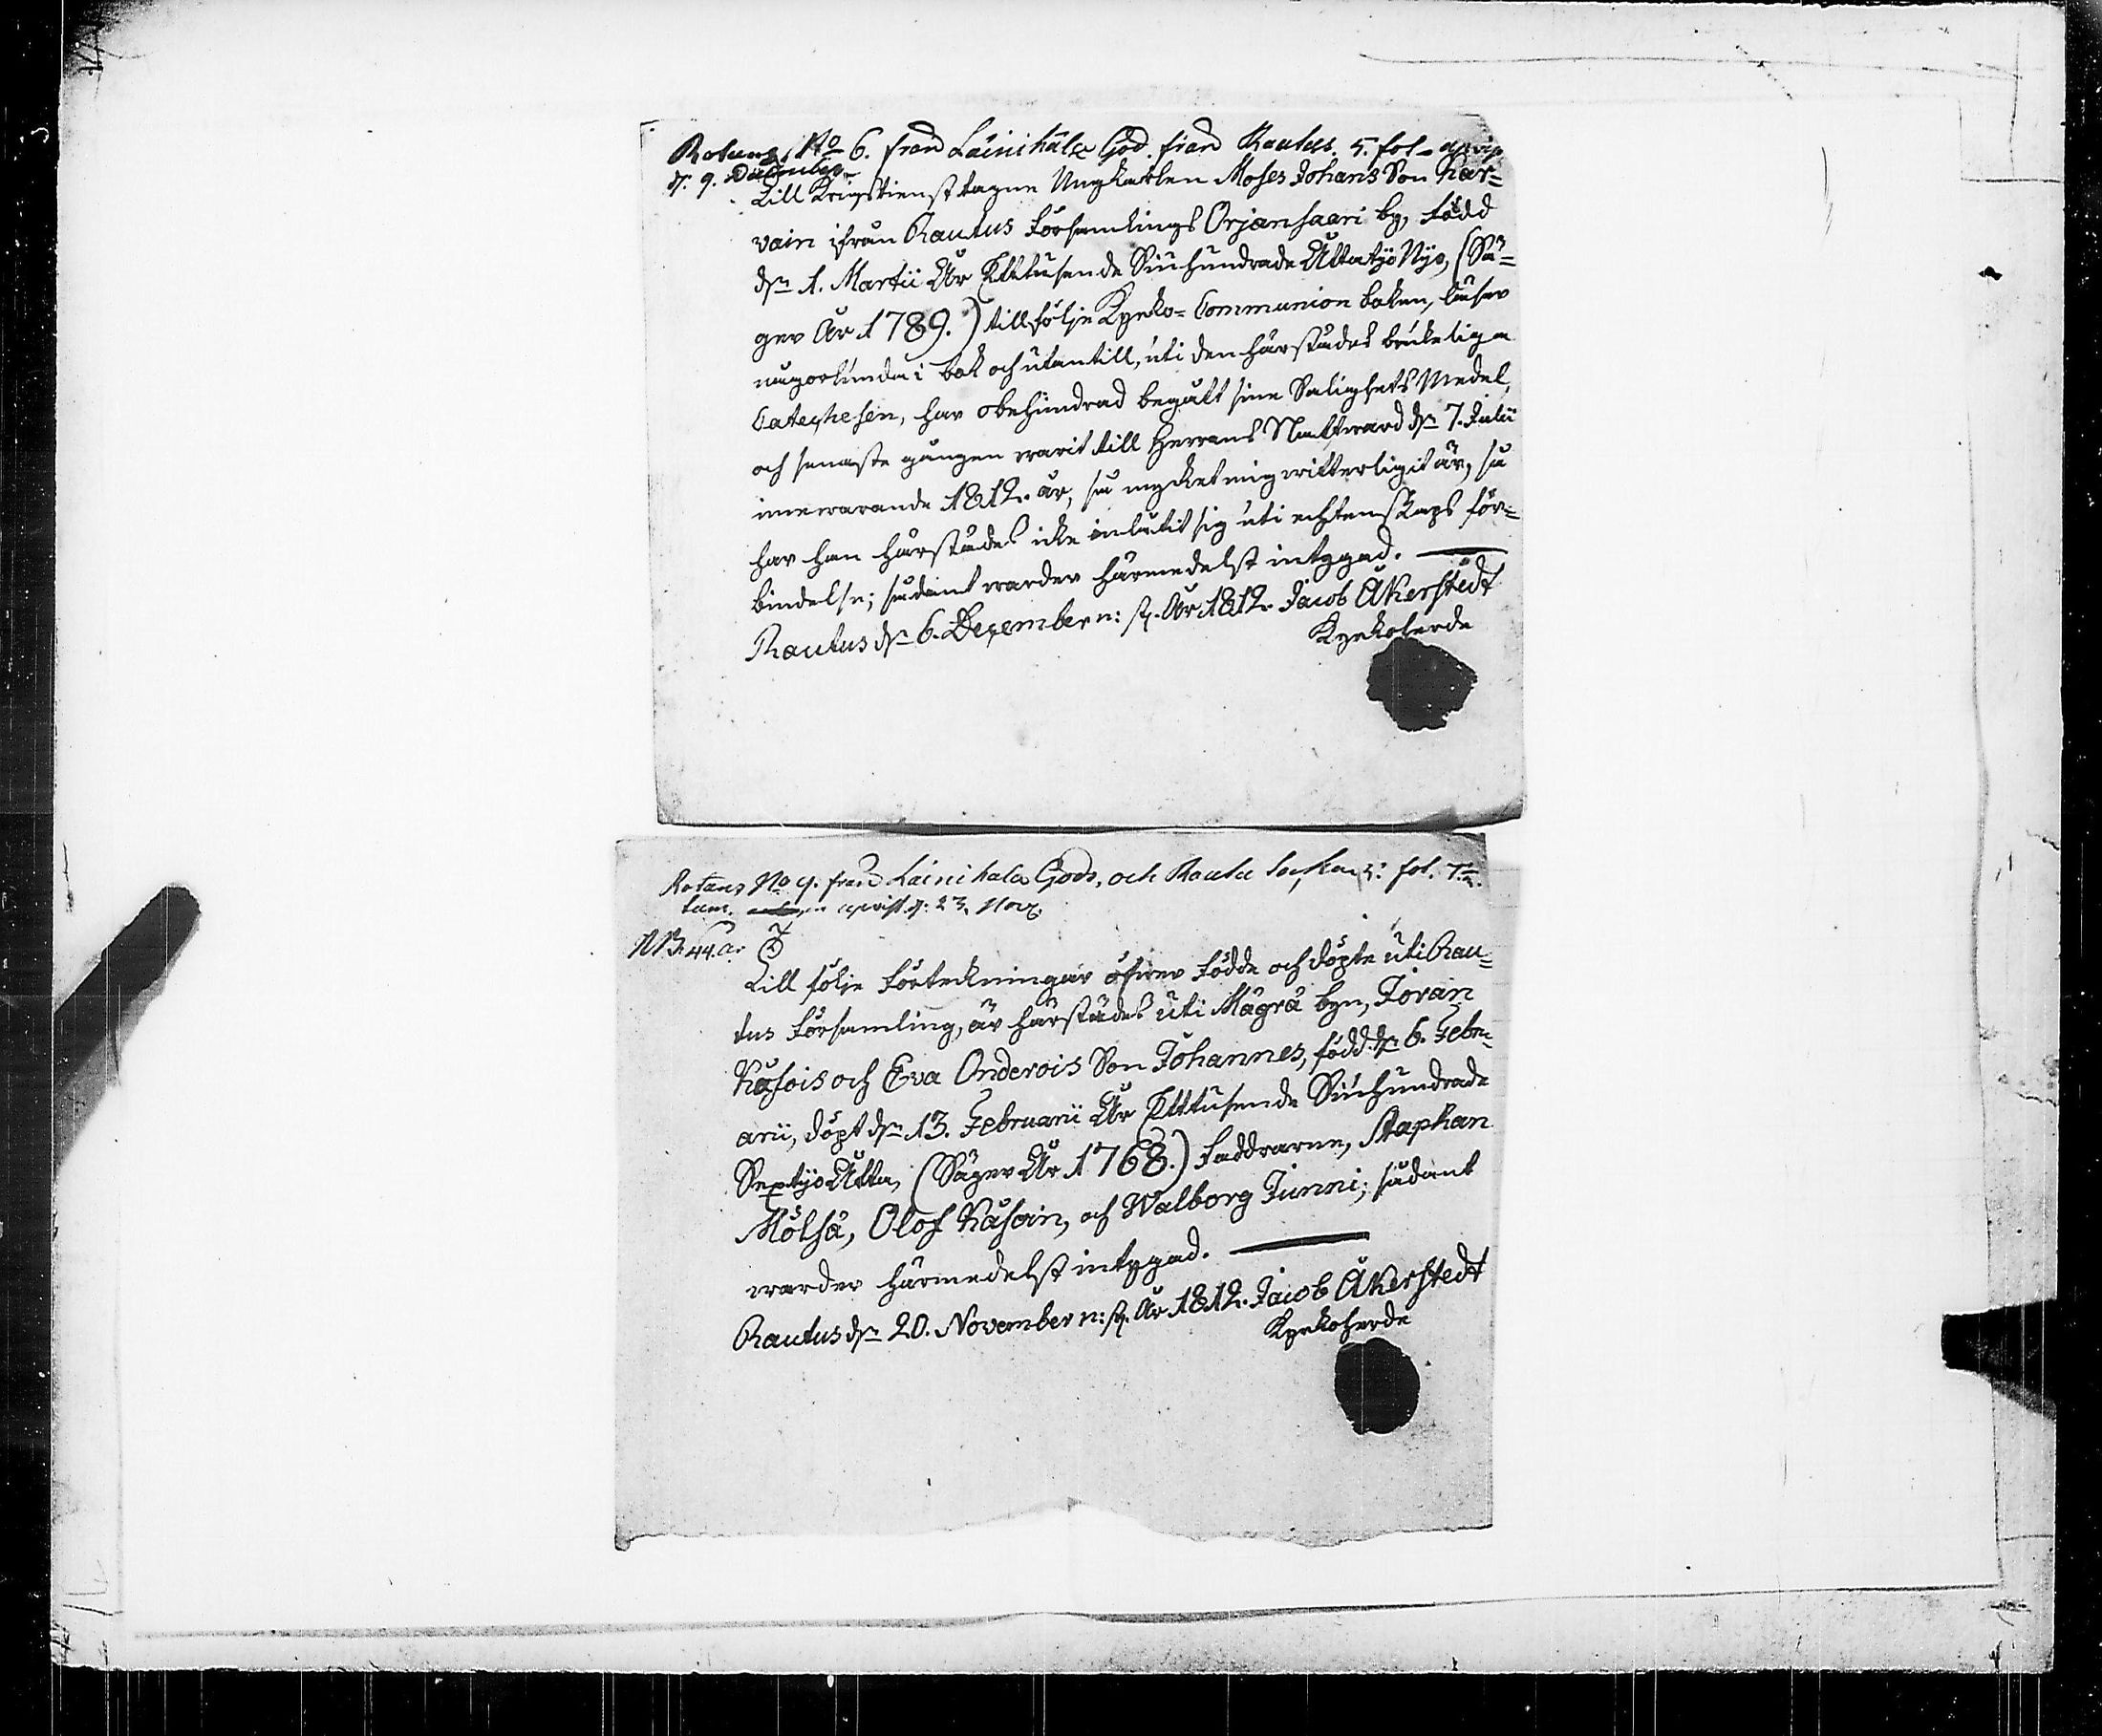 Rotens No 6. från Läinikälä God. från Rautus. 5. fol.
d. 9. December
Till Krigstienst tagne Ungkarlen Moses Johans Son Kar=
vain ifrån Rautus Församlings Orjansaari by, född
dn 1. Martii År Ettusende Siuhundrade Åttatijo Nijo, (Sä=
ger År 1789.) till följe Kyrko= Communion boken, läser
någorlunda i bok och utantill, uti den härstädes brukeliga
Catechesen, har obehindrad begått sine Salighets Medel,
och senaste gången warit till Herrans Nattward dn 7. Julii
innewarande 1812. år, så mycket mig witterligit är, så
har han härstädes icke inlåtit sig uti echtenskaps för=
bindelse; sådant warder härmedelst intygad.
Rautus dn 6. December n: st. År 1812. Jacob Åkerstedt
Kyrkoherde
Rotans No 9. från Läinikälä Gods, och Rautu Sochn 5: fol.
d: 23. Nov.
NB. 44. år
Till följe Förteckningar öfwer Födde och döpte uti Rau=
tus Församling, är härstädes uti Mägrä byn, Jöran
Käsois och Eva Onderois Son Johannes, född dn 6. Febru=
arii, döpt dn 13. Februarii År Ettusende Siuhundrade
Sextijo Åtta, (Säger År 1768.) Faddrarne, Staphan
Mölsä, Olof Käsoin, och Walborg Junni; sådant
warder härmedelst intygad.
Rautus dn 20. November n: st. År 1812. Jacob Åkerstedt
Kyrkoherde